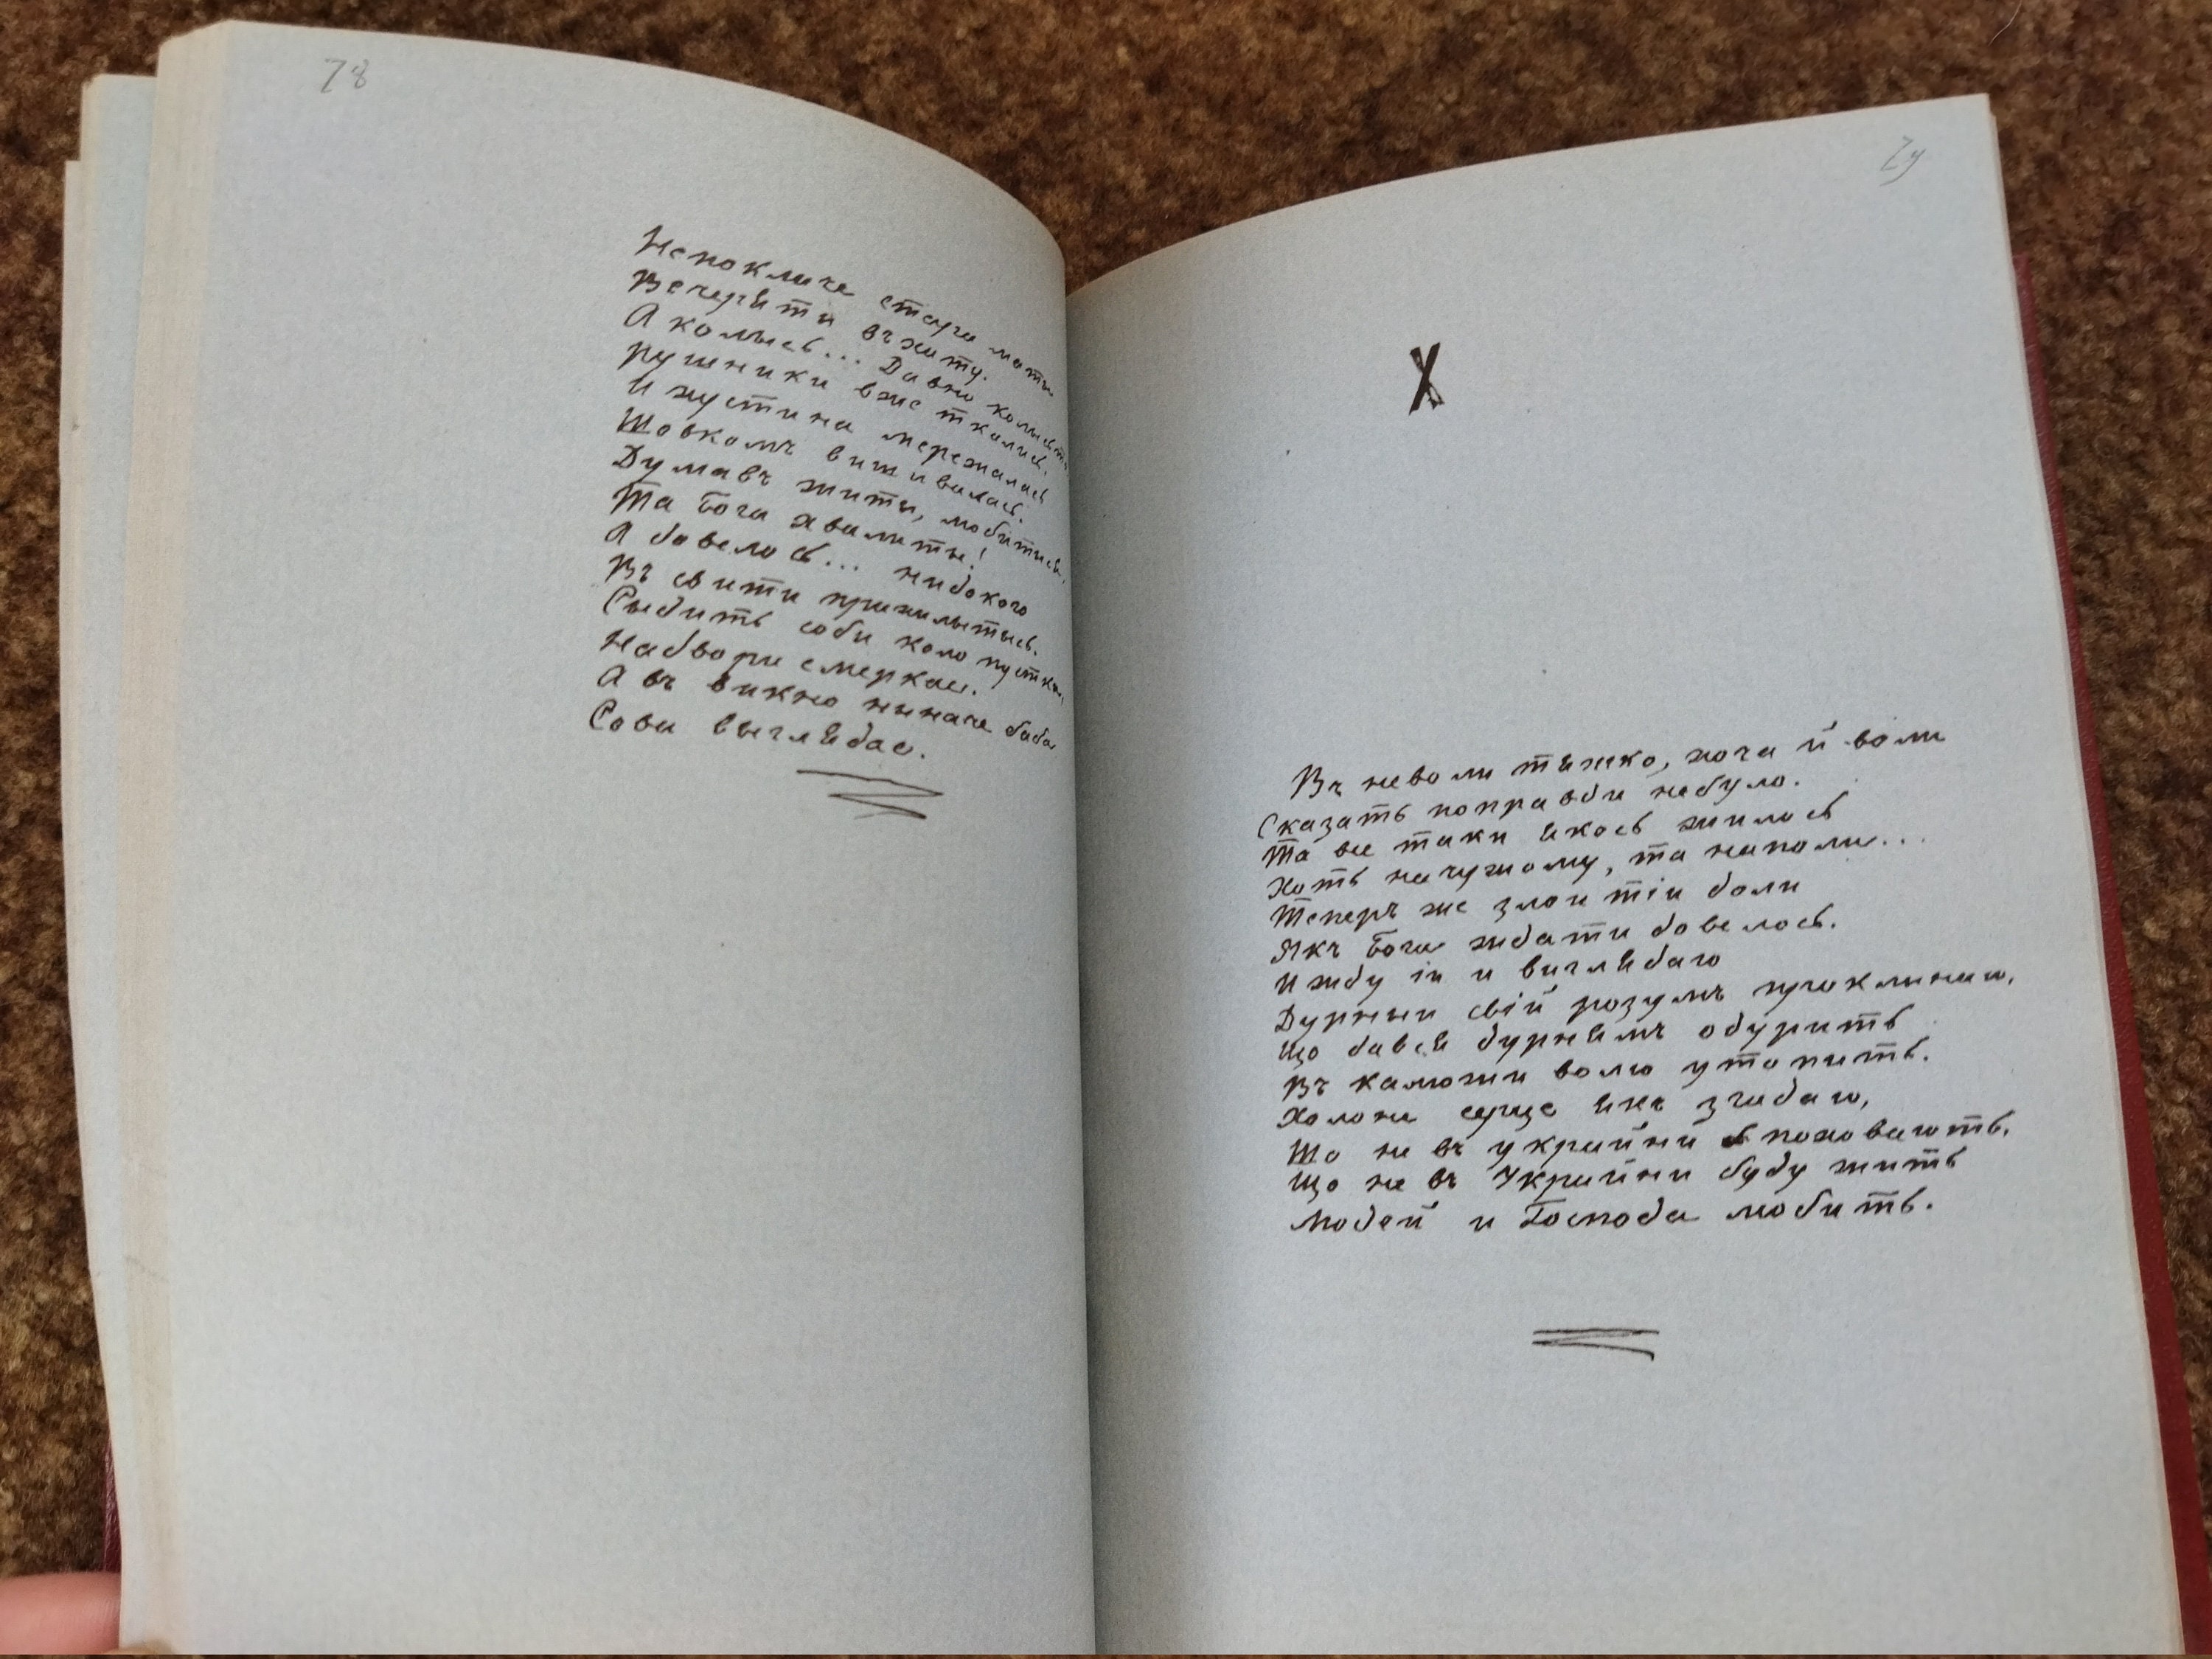 78
Непокличе стара мати
Вечерѣти въхату.
А колысь... Давно колысь то
Рушники вже ткались.
И хустина мережалась
Шовкомъ вишивалась.
Думавъ жыты, любитися,
Та Бога хвалыты!
А довелось... нидокого
Въ свити прихилытысь.
Сыдить соби коло пустки,
Надвори смеркае.
А въ викно ныначе баба
Сова выглядае.
79
X
Въ неволи тяжко, хоча й воли
Сказать поправди небуло.
Та все таки якось жилось
Хоть начужому, та наполи...
Теперъ же злои тіи доли
Якъ Бога ждати довелось.
И жду іи и виглядаю
Дурный свій розумъ проклинаю,
Що давсь дурнямъ одурить
Въ калюжи волю утопить.
Холоне серце якъ згадаю,
Що не въ украйни поховають,
Що не въ Украйни буду жить
Людей и Господа любить.